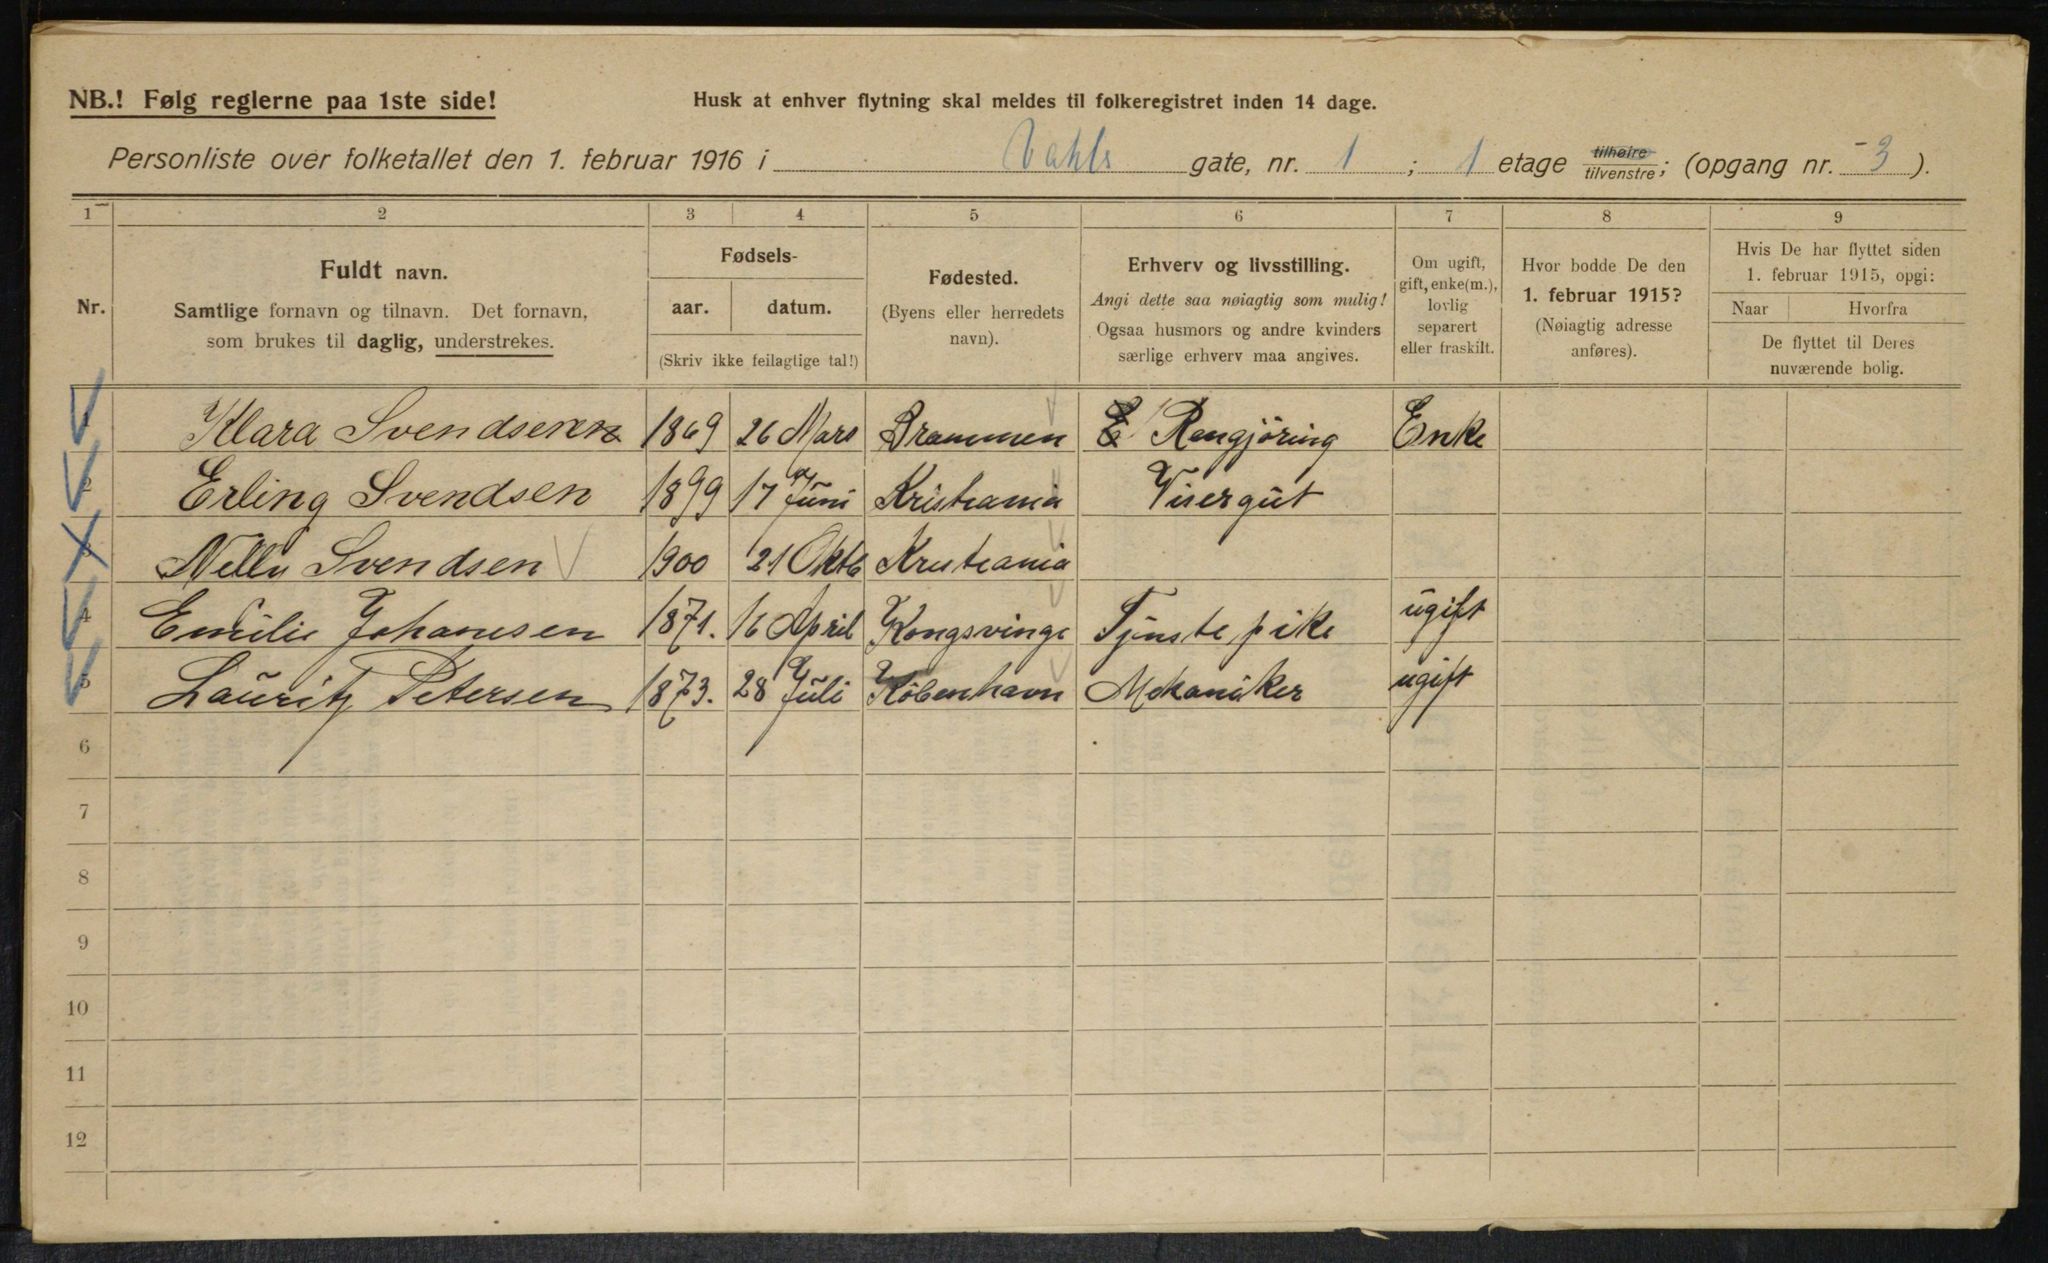 NB.! Følg reglerne paa 1ste side!
Husk at enhver flytning skal meldes til folkeregistret inden 14 dage.
Personliste over folketallet den 1. februar 1916 i Vahls gate, nr. 1 ; 1 etage tilhøire tilvenstre; (opgang nr. -3 ).
1 2 3 4 5 6 7 8 9
Nr.
Fuldt navn.
Samtlige fornavn og tilnavn. Det fornavn,
som brukes til daglig, understrekes.
Fødsels-
aar. datum.
(Skriv ikke feilagtige tal!)
Fødested.
(Byens eller herredets
navn).
Erhverv og livsstilling.
Angi dette saa nøiagtig som mulig!
Ogsaa husmors og andre kvinders
særlige erhverv maa angives.
Om ugift,
gift, enke(m.),
lovlig
separert
eller fraskilt.
Hvor bodde De den
1. februar 1915?
(Nøiagtig adresse
anføres).
Hvis De har flyttet siden
1. februar 1915, opgi:
Naar Hvorfra
De flyttet til Deres
nuværende bolig.
1 Klara Svendsen 1869 26 Mars Drammen Rengjöring Enke
2 Erling Svendsen 1899 17 Juni Kristiania Visergut
3 Nelly Svendsen 1900 21 Oktb Kristiania
4 Emilie Johansen 1871. 16 April Kongsvinge Tjenste pike ugift
5 Lauritz Petersen 1873. 28 Juli Köbenhavn Mekaniker ugift
6
7
8
9
10
11
12